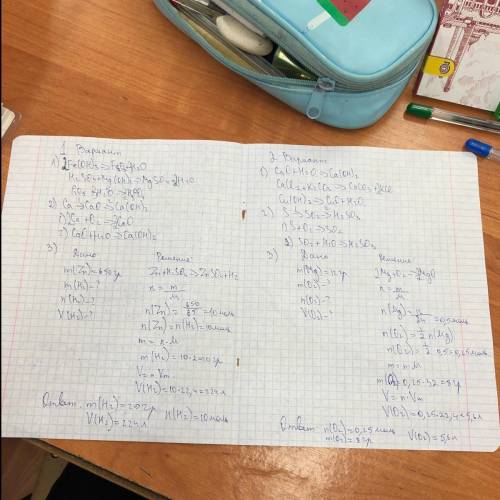 1 Вариант
1) 2Fe(OH)3 → Fe2O3 + H2O
H2SO4 + Mg(OH)2 → MgSO4 + 2H2O
2) Ca → CaO → Ca(OH)2
1) 2Ca + O2 → 2CaO
2) CaO + H2O → Ca(OH)2
3) Дано
m(Zn) = 650 гр
m(H2) - ?
n(H2) - ?
V(H2) - ?
Решение:
Zn + H2SO4 → ZnSO4 + H2
n = m/M
n(Zn) = 650/65 = 10 моль
n(Zn) = n(H2) = 10 моль
m = n · M
m(H2) = 10 · 2 = 20 гр
V = n · Vm
V(H2) = 10 · 22,4 = 224 л
Ответ: m(H2) = 20 гр n(H2) = 10 моль
V(H2) = 224 л
2 Вариант
1) CaO + H2O → Ca(OH)2
Cu(OH)2 → CuO + H2O
2) S → SO2 → H2SO3
1) S + O2 → SO2
2) SO2 + H2O → H2SO3
3) Дано
m(Mg) = 12 гр
m(O2) - ?
n(O2) - ?
V(O2) - ?
Решение
2Mg + O2 → 2MgO
n = m/M
n(Mg) = 12/24 = 0,5 моль
n(O2) = 1/2 n(Mg)
n(O2) = 1/2 · 0,5 = 0,25 моль
m = n · M
m(O2) = 0,25 · 32 = 8 гр
V = n · Vm
V(O2) = 0,25 · 22,4 = 5,6 л
Ответ n(O2) = 0,25 моль V(O2) = 5,6 л
m(O2) = 8 гр